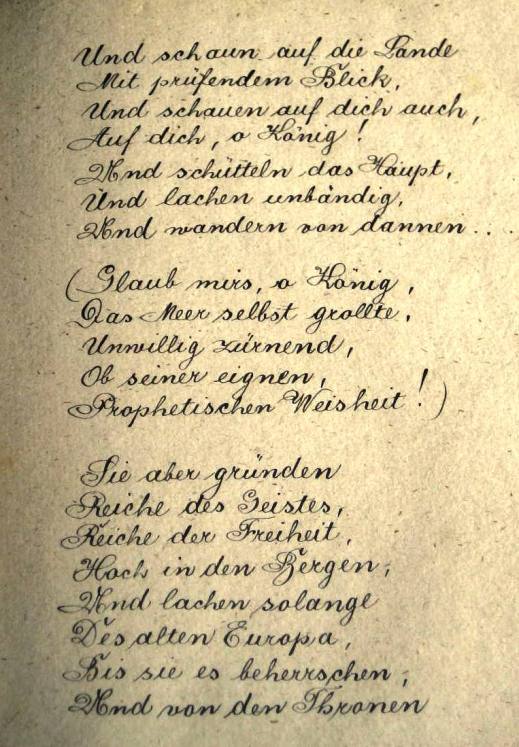 Und schaun auf die Lande
Mit prüfendem Blick,
Und schauen auf dich auch,
Auf dich, o König!
Und schütteln das Haupt,
Und lachen unbändig,
Und wandern von dannen...
(Glaub mirs, o König,
Das Meer selbst grollte,
Unwillig zürnend,
Ob seiner eignen,
Prophetischen Weisheit!)
Sie aber gründen
Reiche des Geistes,
Reiche der Freiheit,
Hoch in den Bergen,
Und lachen solange
Des alten Europa,
Bis sie es beherrschen,
Und von den Thronen